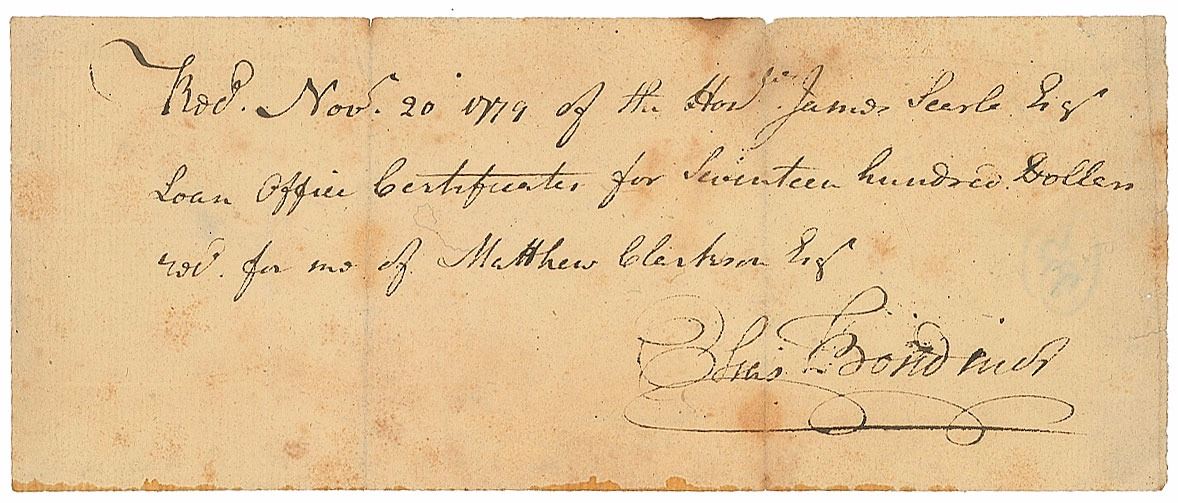 Recd. Novr. 20 1779 of the Honble James Searle Esqr
Loan Office Certificates for Seventeen hundred Dollars
recd. for me of Matthew Clarkson Esqr
Elias Boudinot